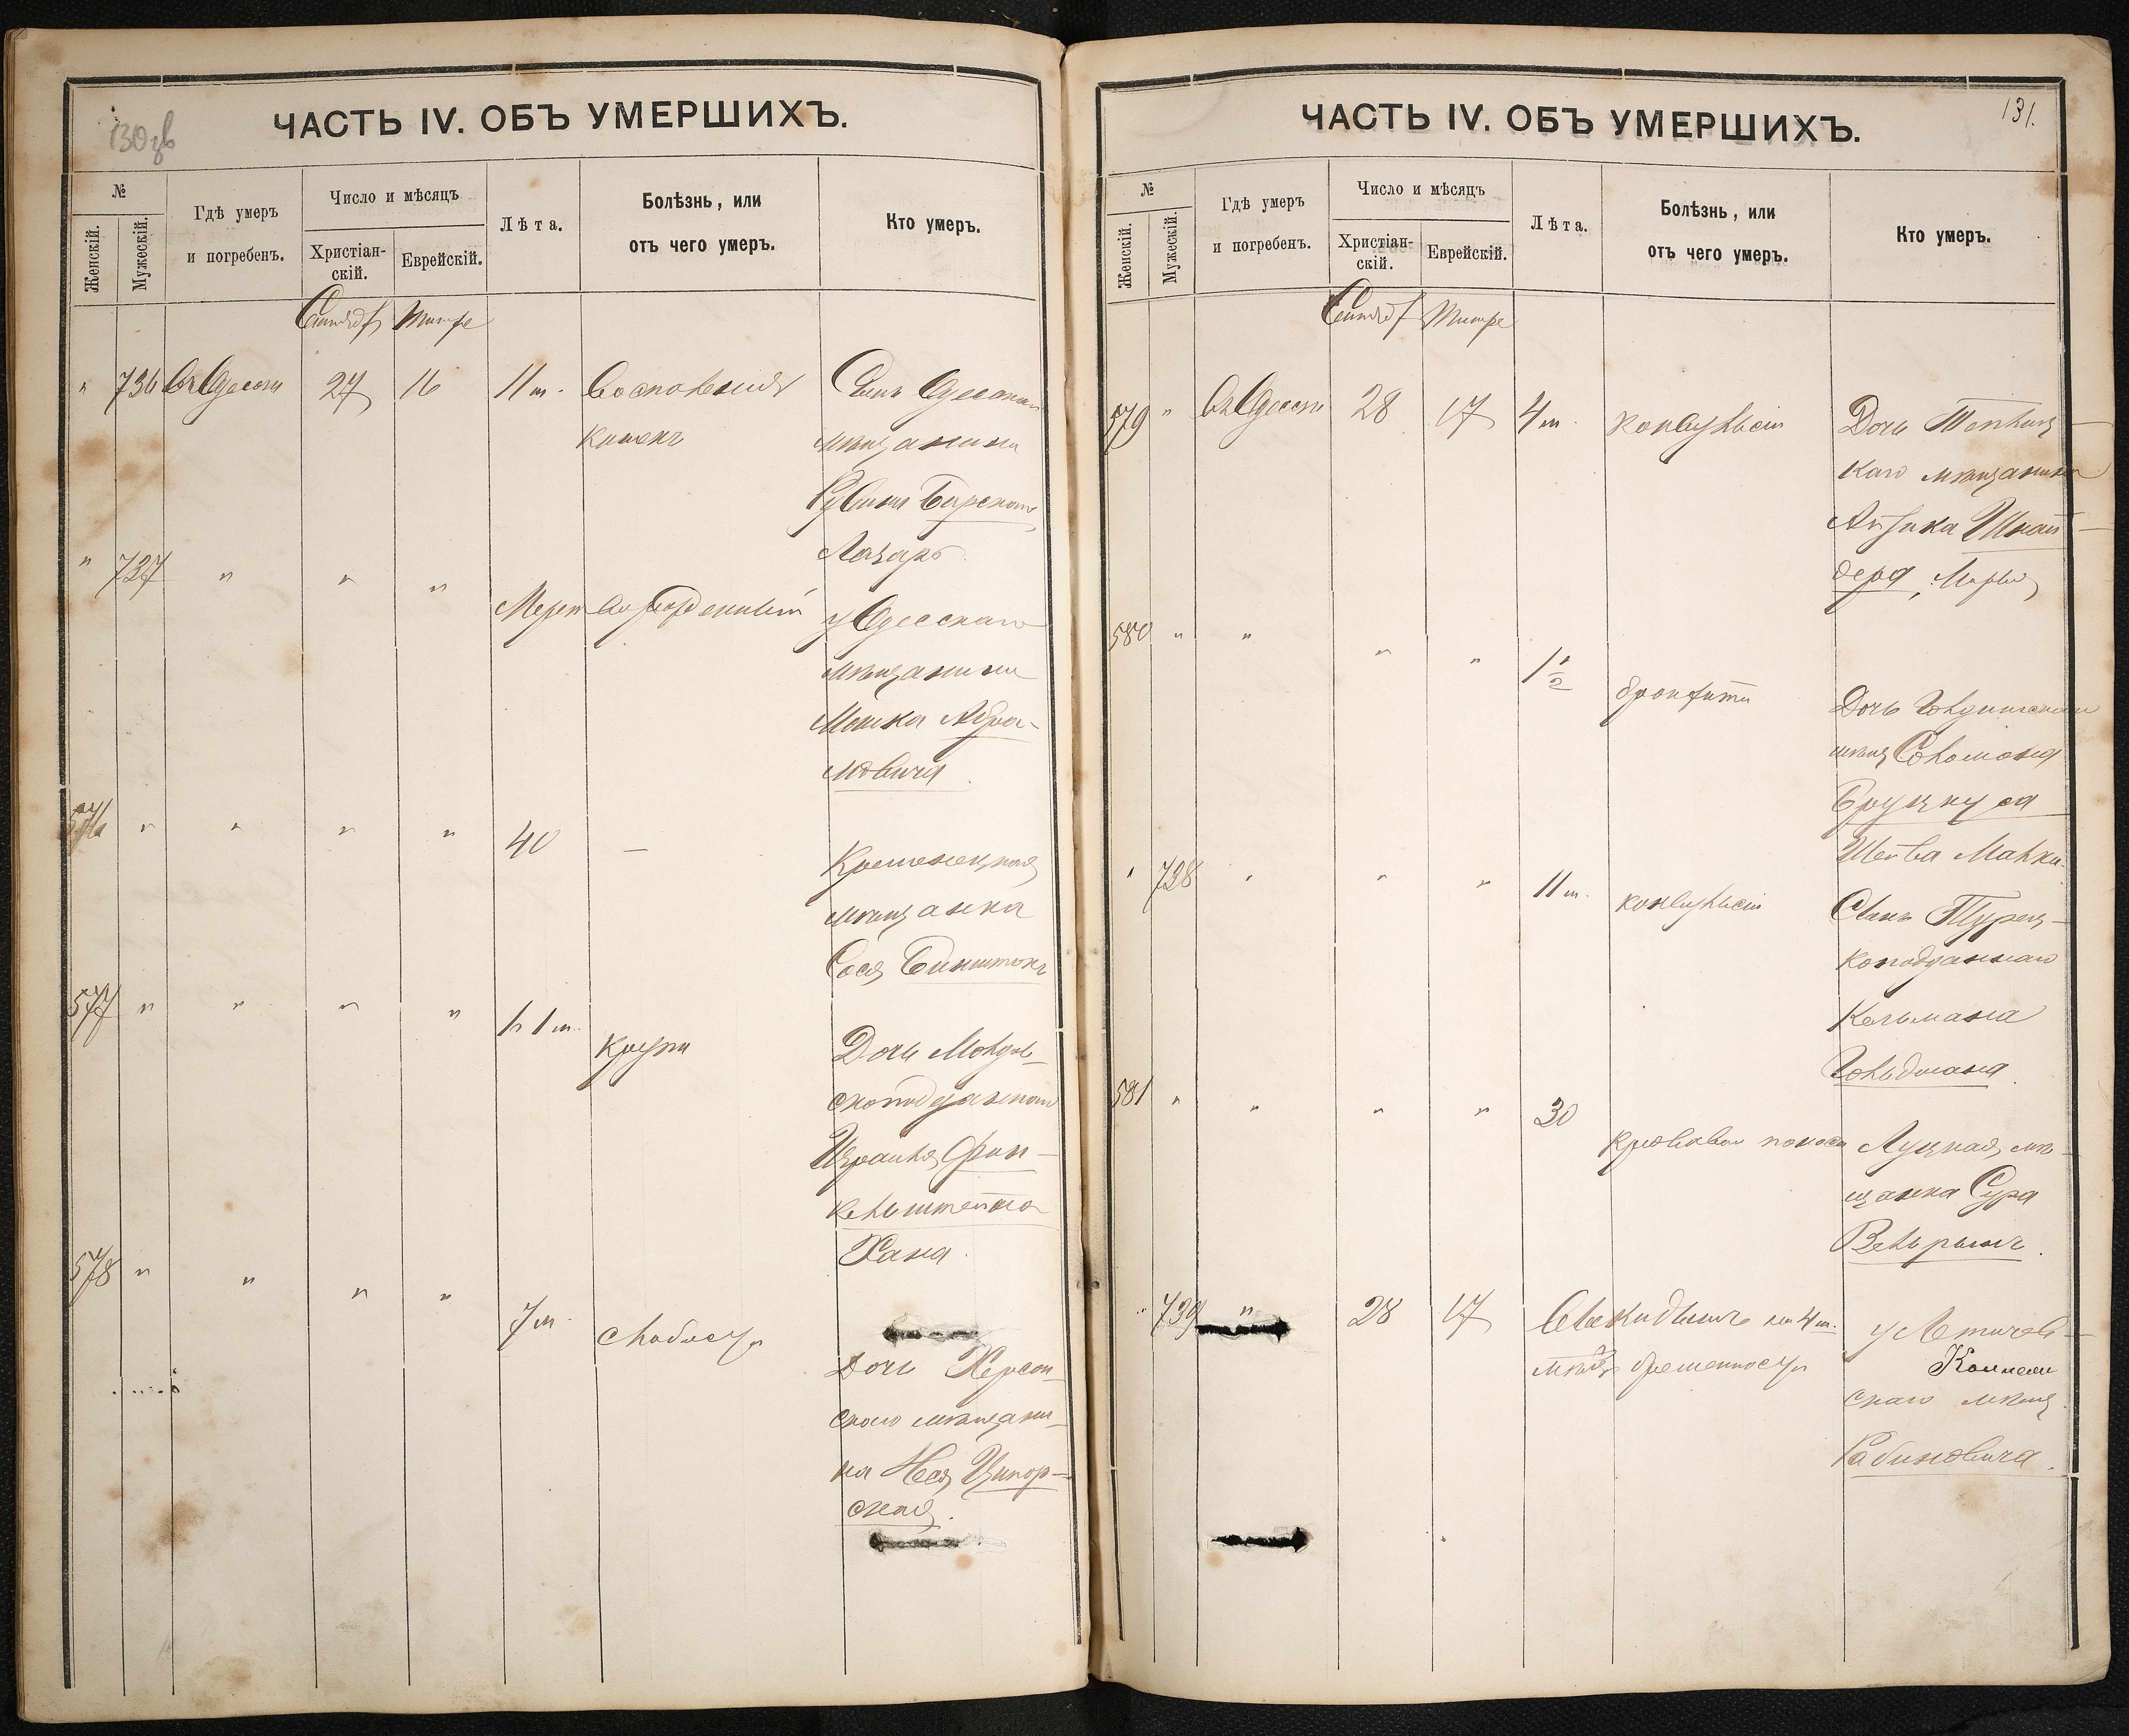 130 об
ЧАСТЬ IV. ОБЪ УМЕРШИХЪ.
№
Женскій.
Мужескій.
Гдѣ умеръ
и погребенъ.
Число и мѣсяцъ
Христіан-
скій.
Еврейскій.
Лѣта.
Болѣзнь, или
отъ чего умеръ.
Кто умеръ.
Сентяб Тишре
" 736 въ Одессѣ 27 16 11 м. Воспаленія Сынъ Одесскаго
кишекъ мѣщанина
Рувина Бирскаго
Лазарь
" 737 " " " Мертворожденный у Одесскаго
мѣщанина
Мошка Абра-
мовича.
576 " " " " 40 — Кременецкая
мѣщанка
Сося Бинштокъ
577 " " " " 1 г 1 м.
крупъ Дочь Молдав-
скоподданнаго
Израиля Фин-
кельштейна
Хана.
578 " " " " 7 м.
слабость
Дочь Херсон-
скаго мѣщани-
на Неся Ципор-
ская.
131.
ЧАСТЬ IV. ОБЪ УМЕРШИХЪ.
№
Женскій.
Мужескій.
Гдѣ умеръ
и погребенъ.
Число и мѣсяцъ
Христіан-
скій.
Еврейскій.
Лѣта.
Болѣзнь, или
отъ чего умеръ.
Кто умеръ.
Сентяб Тишре
579 " въ Одессѣ 28 17 4 м. конвульсіи Дочь
каго мѣщанина
Айзика Шнай-
дера,
580 " " " " 1 1/2
бронхитъ Дочь
мѣщ Соломона
Бруцкуса
Шейва Малка.
" 738 " " " 11 м. конвульсіи Сынъ Турец-
коподданнаго
Кельмана
Гольдмана
581 " " " " 30
кровавый поносъ Луцкая мѣ-
щанка Сура
Вельрынъ.
" 739 " 28 17 Выкидышъ на 4 м. у Летичев-
мѣсяцѣ беременности
скаго мѣщ.
Рабиновича.